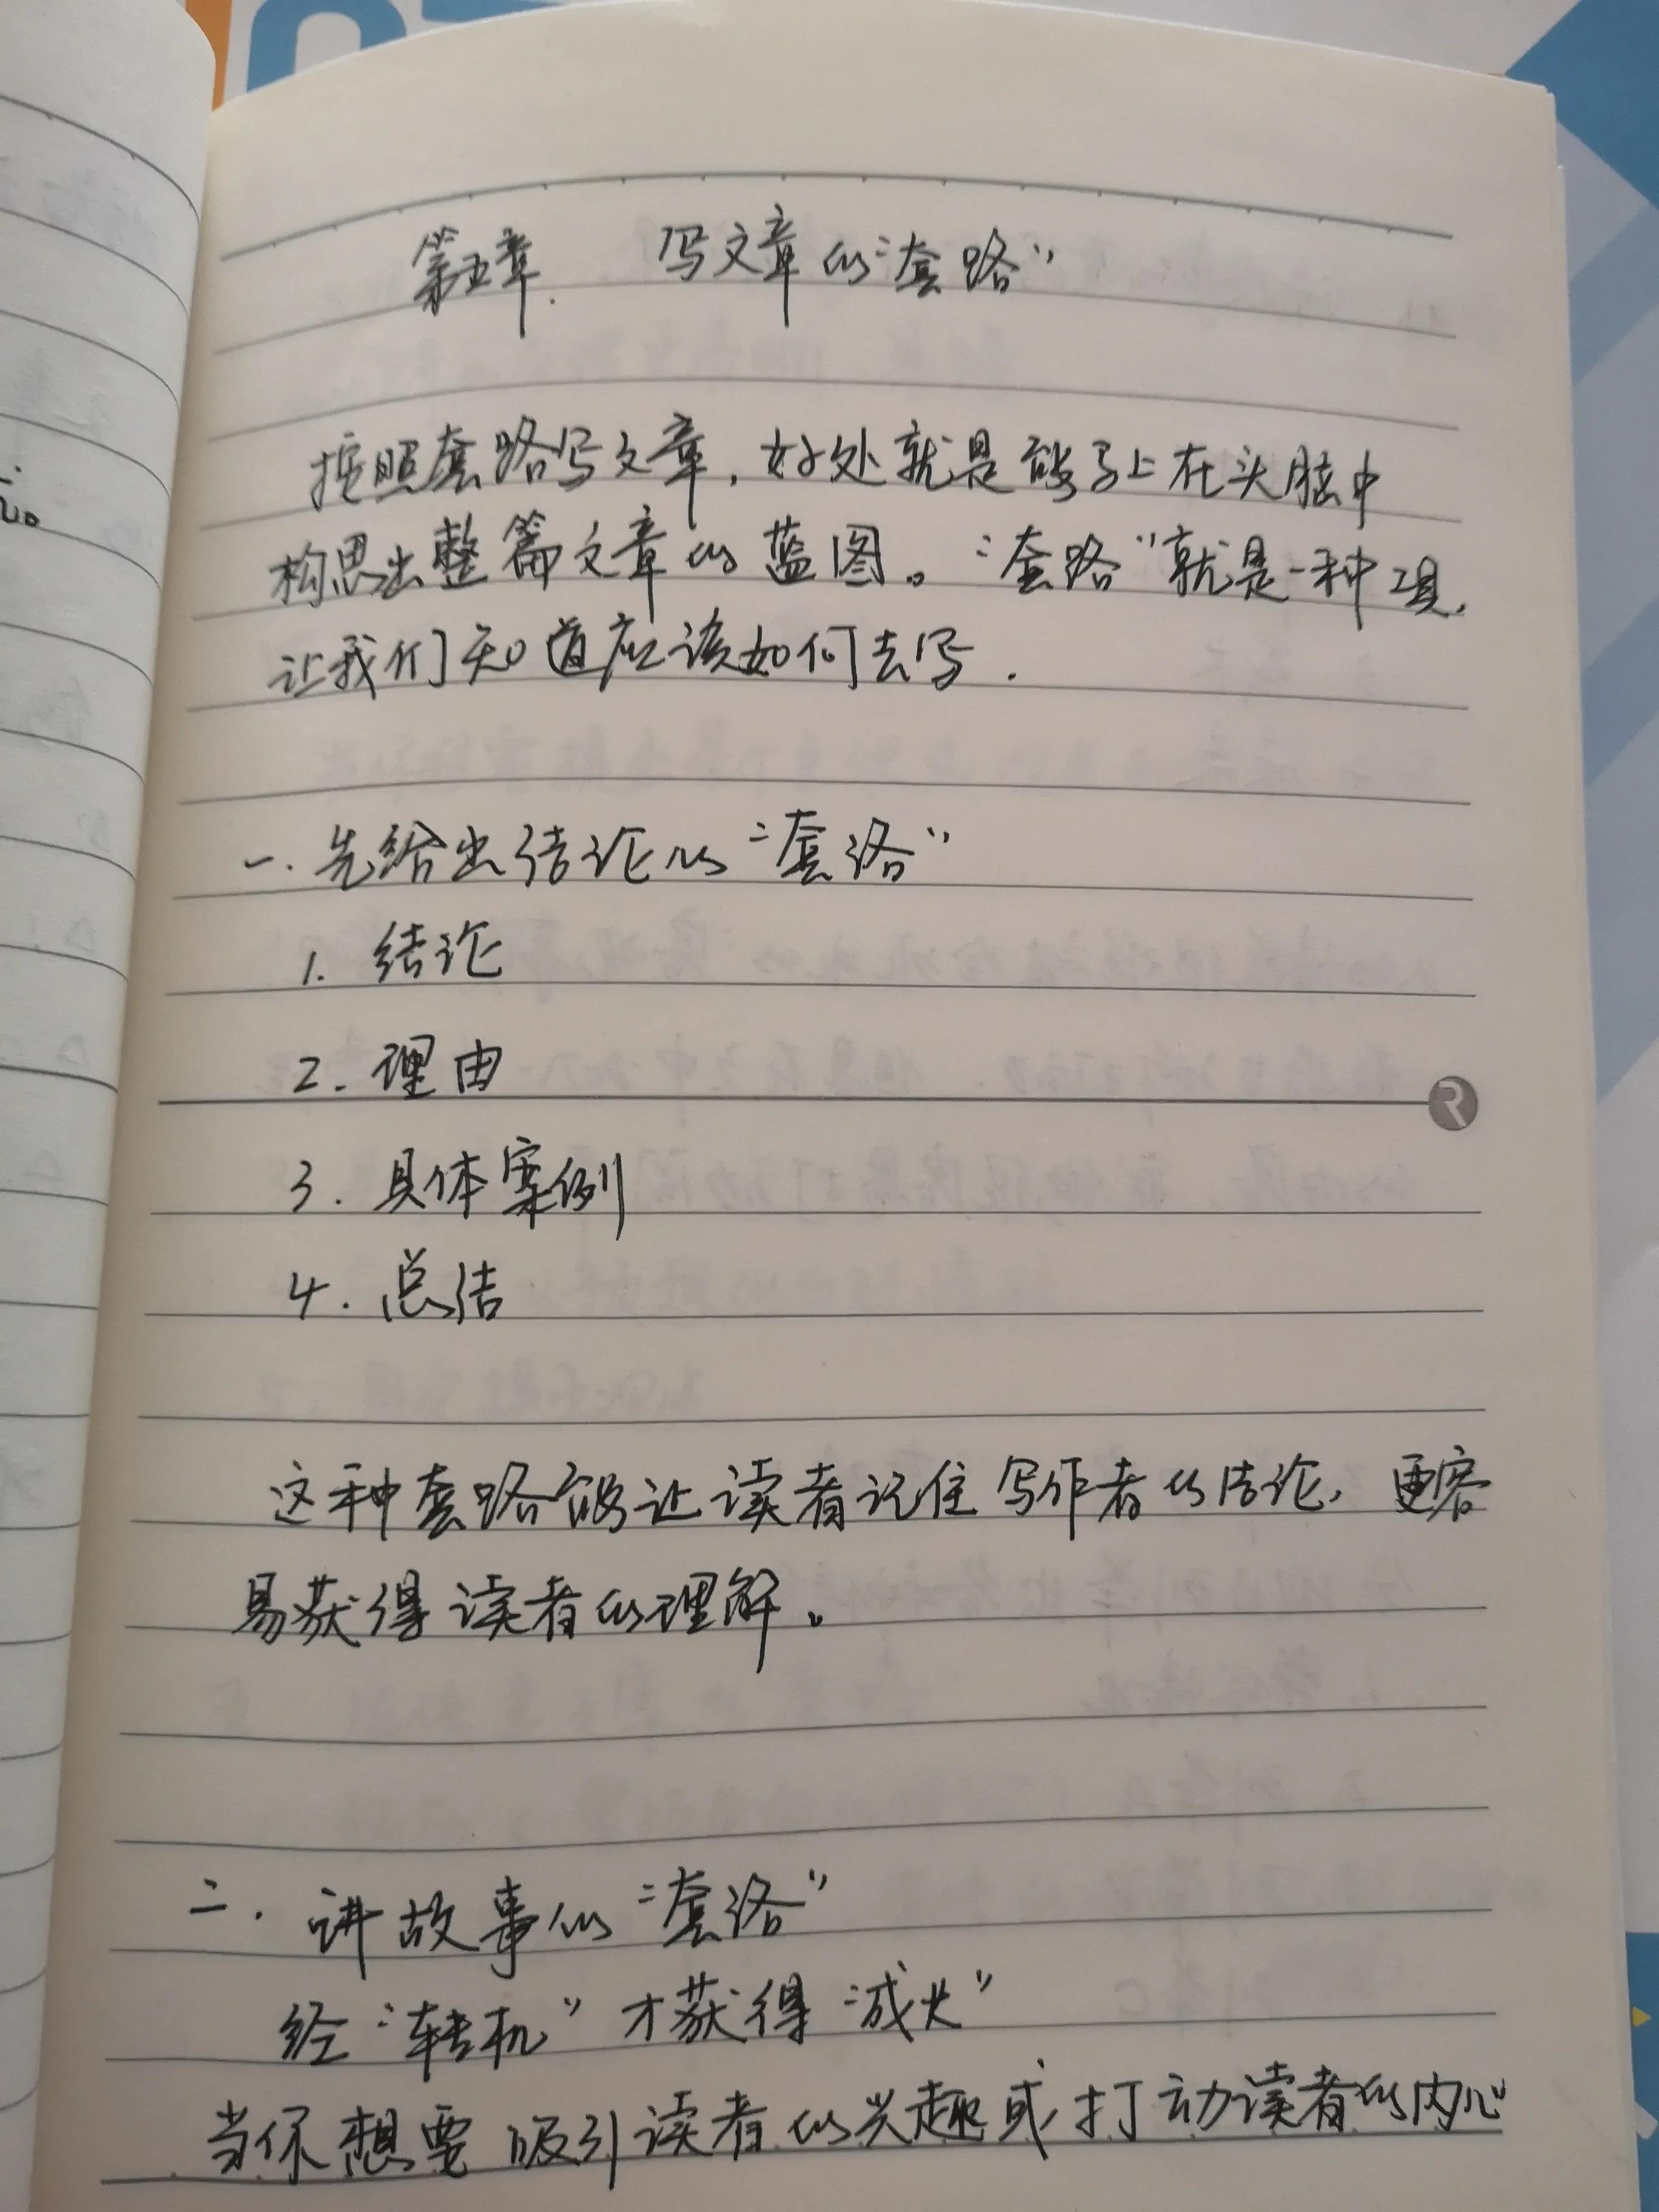 第五章. 写文章的“套路”
按照套路写文章,好处就是能马上在头脑中
构思出整篇文章的蓝图。“套路”就是一种工具,
让我们知道应该如何去写.
一.先给出结论的“套路”
1. 结论
2. 理由
3. 具体案例
4. 总结
这种套路能让读者记住写作者的结论,更容
易获得读者的理解。
二. 讲故事的“套路”
经“转机”才获得“成长”
当你想要吸引读者的兴趣或打动读者的内心